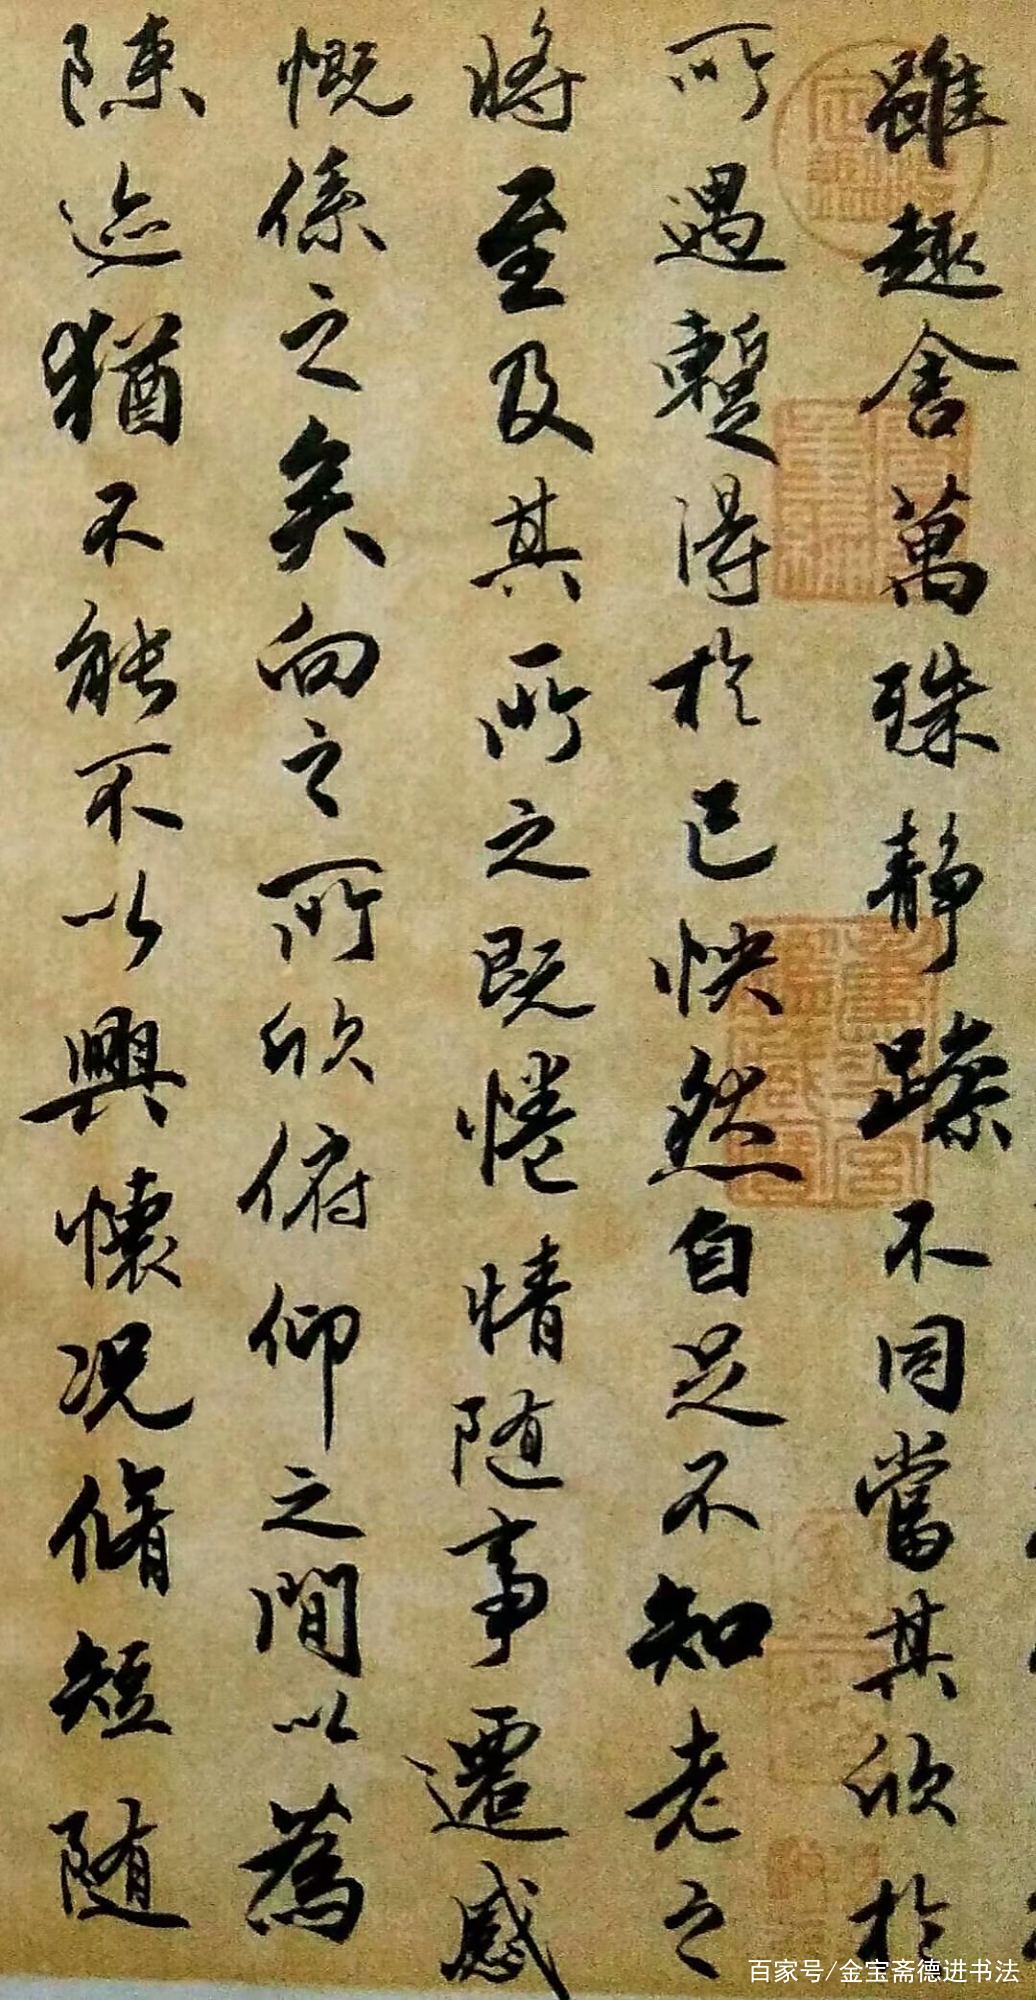 雖趣舍萬殊靜躁不同當其欣於
所遇暫得於己怏然自足不知老之
將至及其所之既惓情隨事遷感
慨係之矣向之所欣俯仰之間以為
陳迹猶不能不以興懷況脩短隨
百家号/金宝斋德进书法